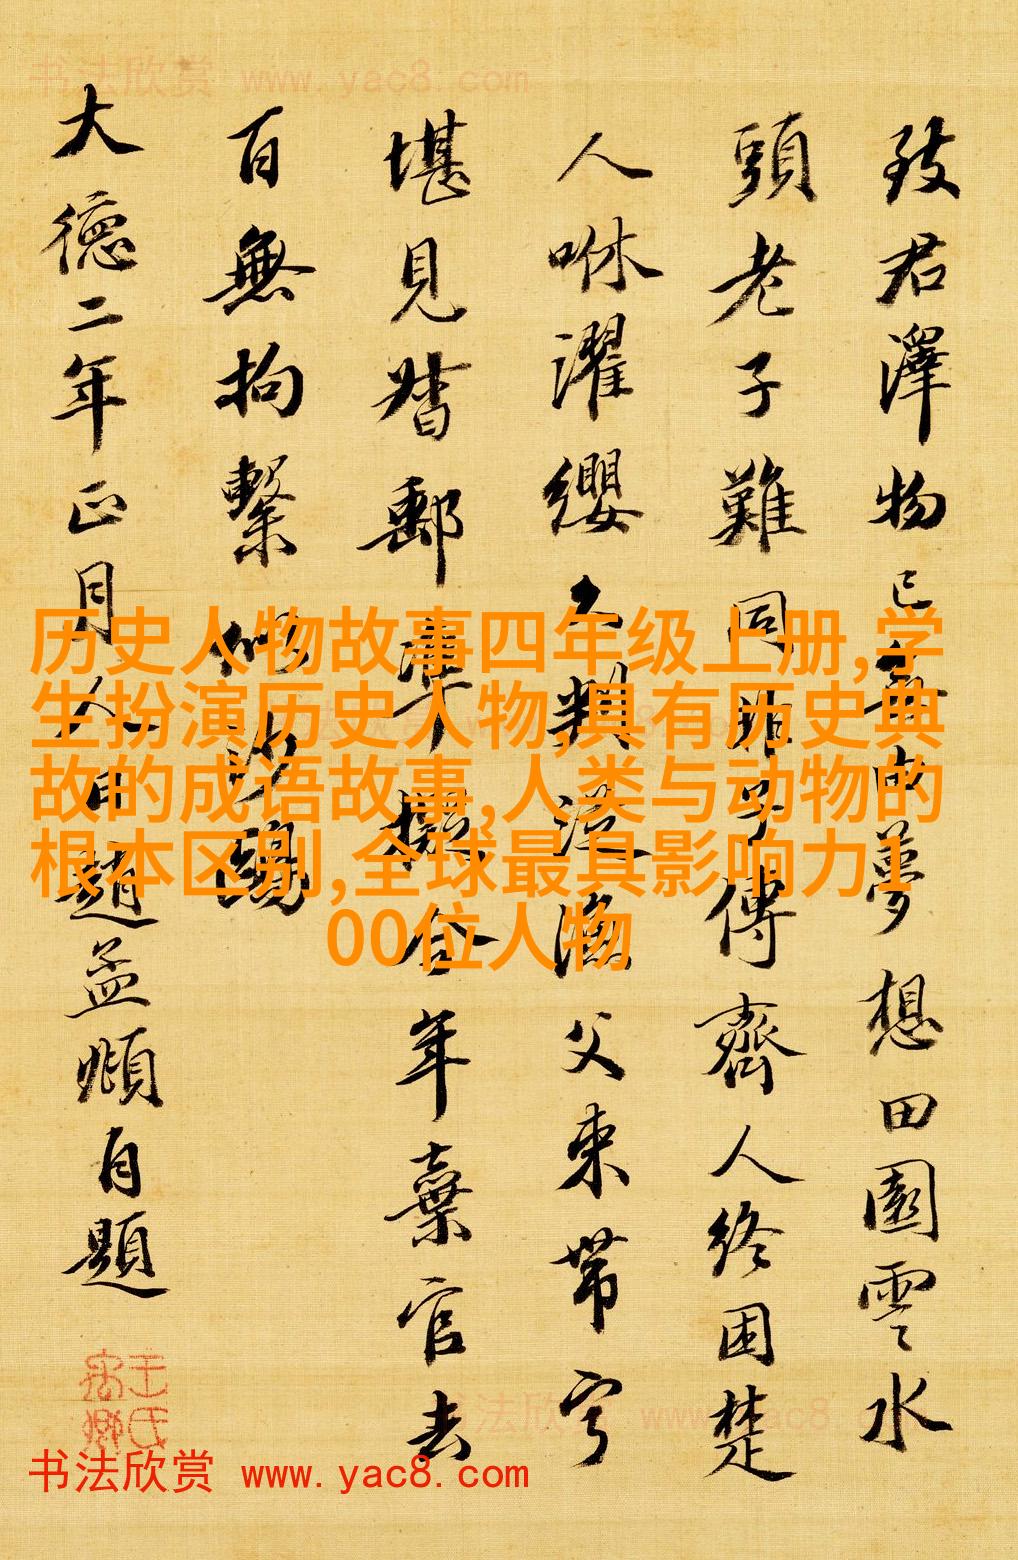 书法欣赏 www.yac8.com
致君澤物已無由夢想田園雲水
頭老子難同非子傳齊人終困楚
人咻濯纓久判從漁父束帶寧
堪見督郵準擬今年棄官去
百無拘繫似沙鷗
大德二年正月人日趙孟頫自題
历史人物故事四年级上册,学
生扮演历史人物,具有历史典
故的成语故事,人类与动物的
根本区别,全球最具影响力1
00位人物
书法欣赏 www.yac8.com
书法欣赏 www.yac8.com